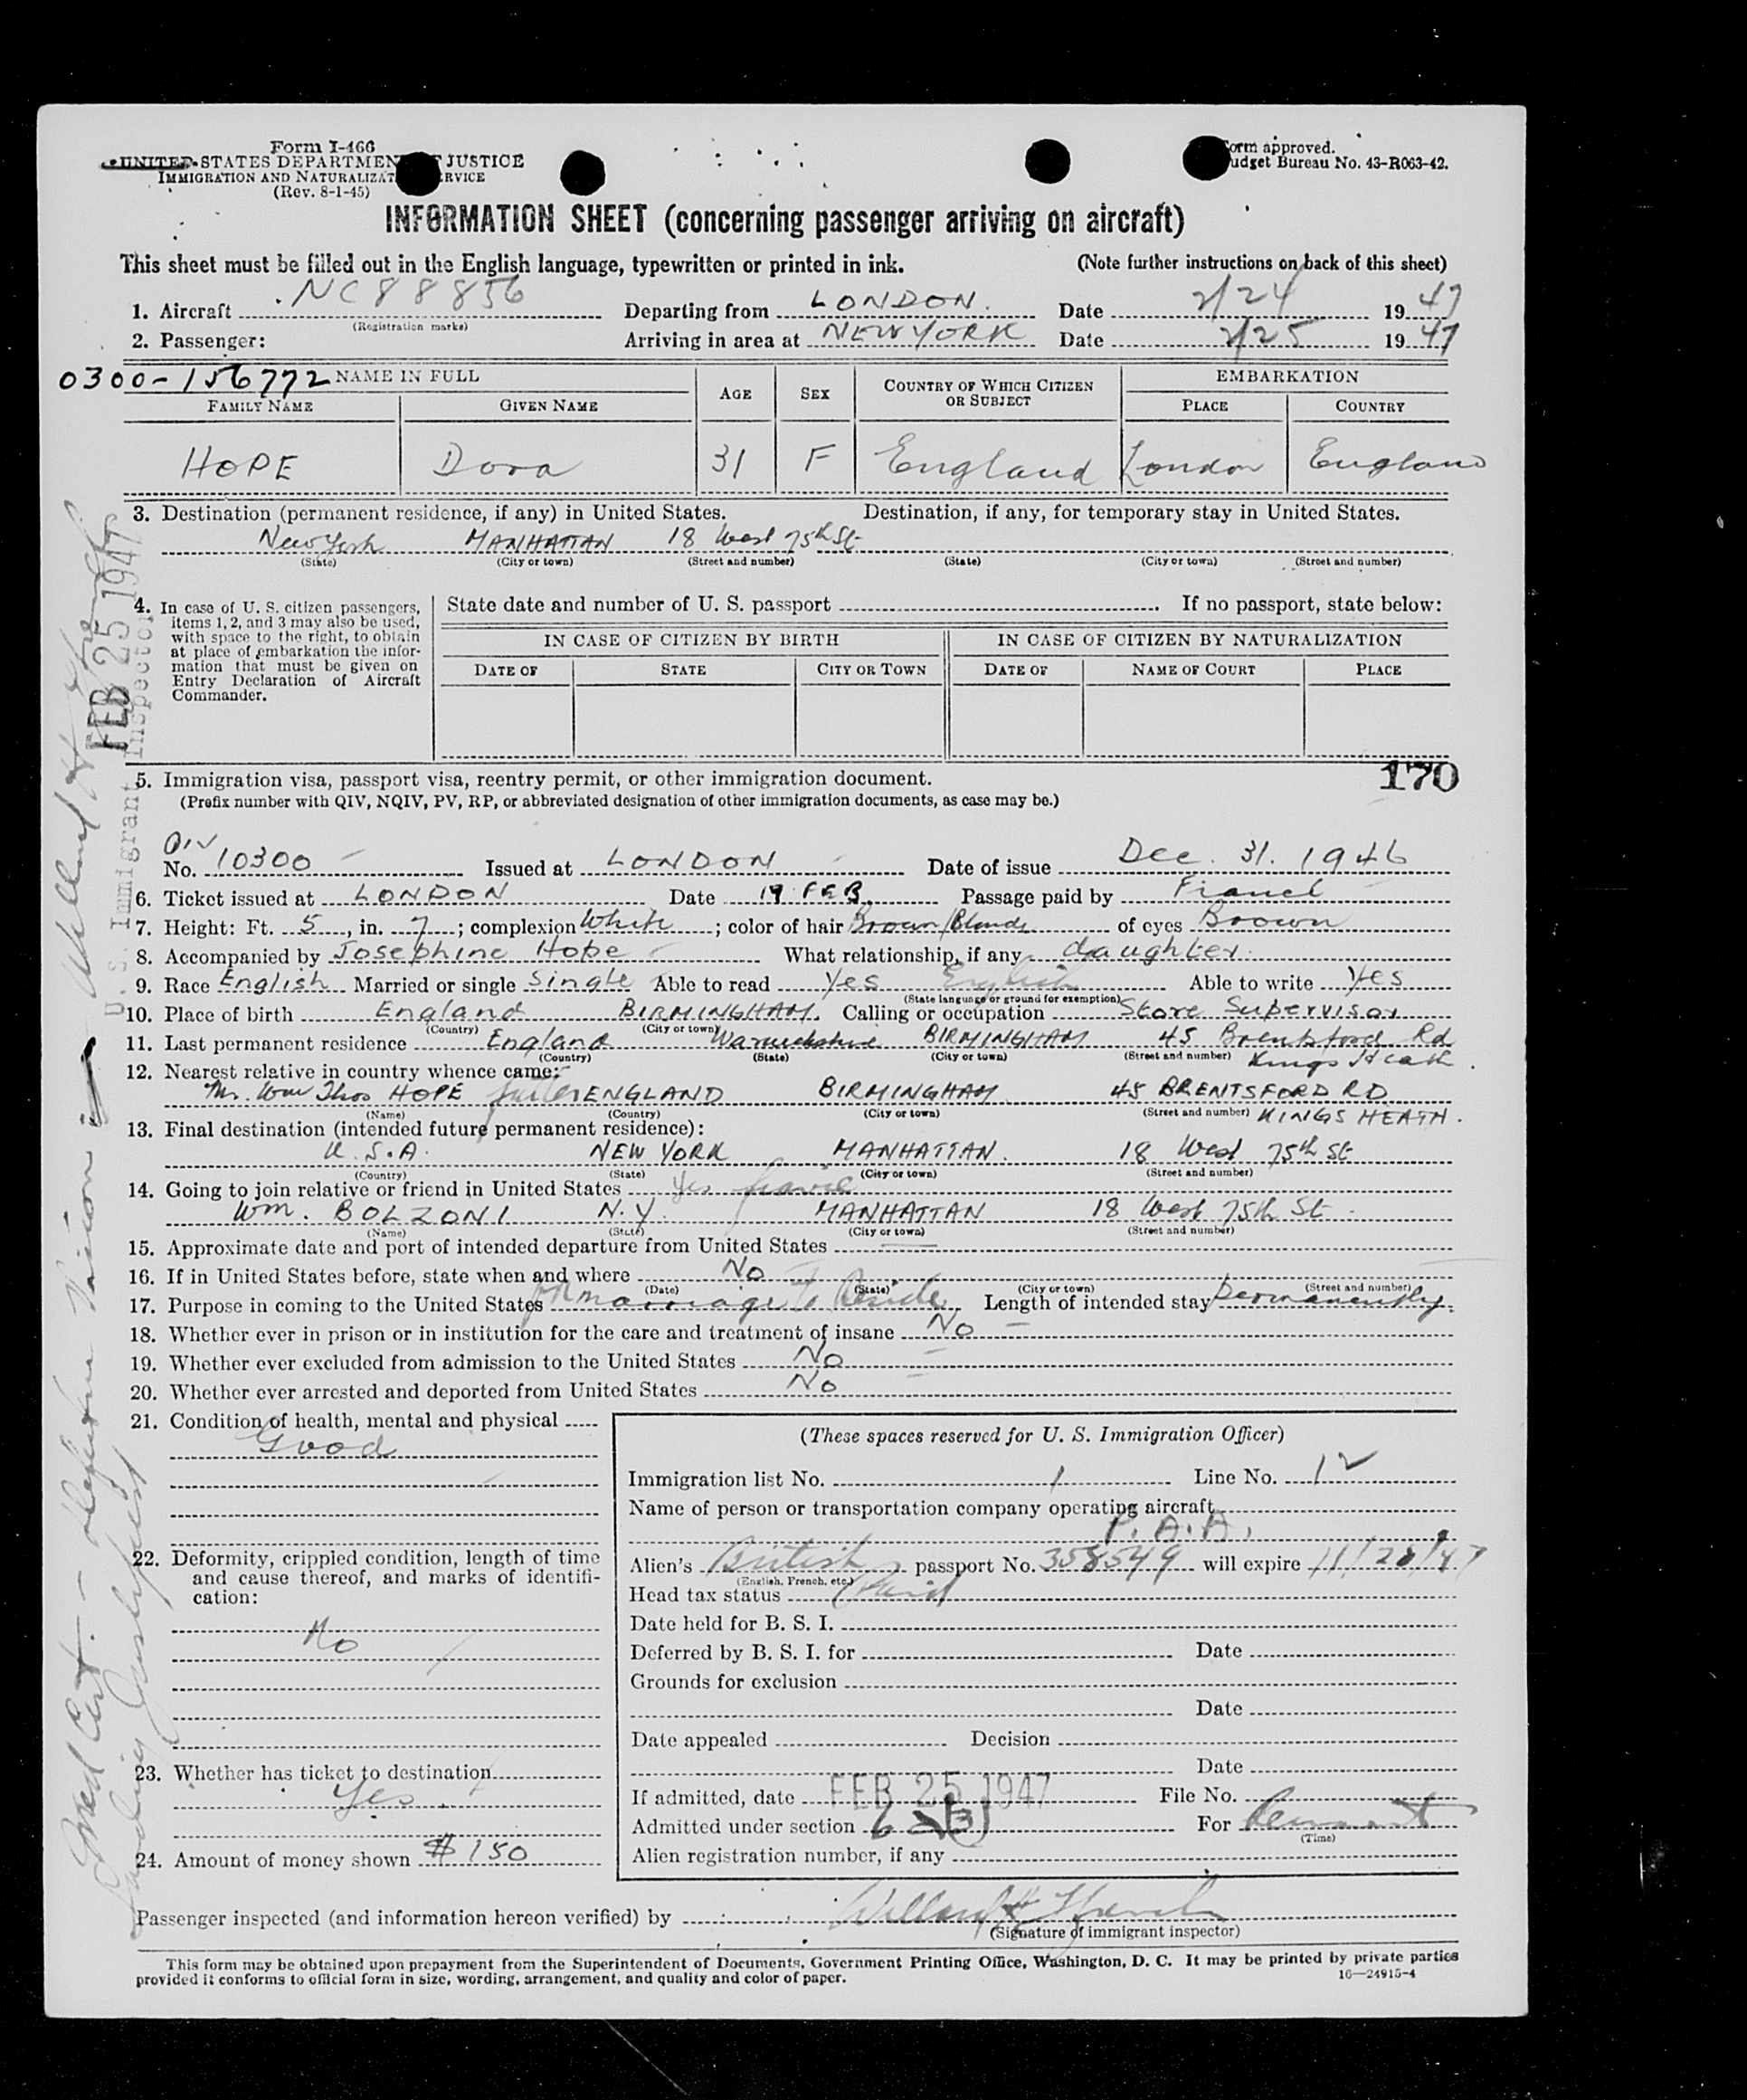 Form I-466
UNITED STATES DEPARTMENT JUSTICE
IMMIGRATION AND NATURALIZAT RVICE
(Rev. 8-1-45)
orm approved.
udget Bureau No. 43-R063-42.
INFORMATION SHEET (concerning passenger arriving on aircraft)
This sheet must be filled out in the English language, typewritten or printed in ink. (Note further instructions on back of this sheet)
1. Aircraft NC88856 Departing from LONDON. Date 2/24 1947
(Registration marks)
2. Passenger: Arriving in area at NEW YORK Date 2/25 1947
0300-156772 NAME IN FULL AGE SEX COUNTRY OF WHICH CITIZEN OR SUBJECT EMBARKATION
FAMILY NAME GIVEN NAME PLACE COUNTRY
HOPE Dora 31 F England London England
3. Destination (permanent residence, if any) in United States. Destination, if any, for temporary stay in United States.
New York MANHATTAN 18 West 75th St
(State) (City or town) (Street and number) (State) (City or town) (Street and number)
4. In case of U. S. citizen passengers, items 1, 2, and 3 may also be used, with space to the right, to obtain at place of embarkation the information that must be given on Entry Declaration of Aircraft Commander.
State date and number of U. S. passport . If no passport, state below:
IN CASE OF CITIZEN BY BIRTH IN CASE OF CITIZEN BY NATURALIZATION
DATE OF STATE CITY OR TOWN DATE OF NAME OF COURT PLACE
170
5. Immigration visa, passport visa, reentry permit, or other immigration document.
(Prefix number with QIV, NQIV, PV, RP, or abbreviated designation of other immigration documents, as case may be.)
QIV
No. 10300 Issued at LONDON Date of issue Dec. 31. 1946
6. Ticket issued at LONDON Date 19 FEB. Passage paid by Fiancé
7. Height: Ft. 5, in. 7; complexion White; color of hair Brown/Blonde of eyes Brown
8. Accompanied by Josephine Hope What relationship, if any daughter.
9. Race English Married or single Single Able to read Yes English Able to write Yes
(State language or ground for exemption)
10. Place of birth England BIRMINGHAM. Calling or occupation Store Supervisor
(Country) (City or town)
11. Last permanent residence England Warwickshire BIRMINGHAM 45 Brentsford Rd
(Country) (State) (City or town) (Street and number) Kings Heath.
12. Nearest relative in country whence came:
Mr. Wm Thos HOPE ENGLAND BIRMINGHAM 45 BRENTSFORD RD
(Name) (Country) (City or town) (Street and number) KINGS HEATH.
13. Final destination (intended future permanent residence):
U.S.A. NEW YORK MANHATTAN. 18 West 75th St
(Country) (State) (City or town) (Street and number)
14. Going to join relative or friend in United States Yes
Wm. BOLZONI N.Y. MANHATTAN 18 West 75th St.
(Name) (State) (City or town) (Street and number)
15. Approximate date and port of intended departure from United States
16. If in United States before, state when and where No
(Date) (State) (City or town) (Street and number)
17. Purpose in coming to the United States for marriage to Reside Length of intended stay Permanently.
18. Whether ever in prison or in institution for the care and treatment of insane No
19. Whether ever excluded from admission to the United States No
20. Whether ever arrested and deported from United States No
21. Condition of health, mental and physical
Good
22. Deformity, crippled condition, length of time and cause thereof, and marks of identification:
No
23. Whether has ticket to destination
Yes
24. Amount of money shown $150
(These spaces reserved for U. S. Immigration Officer)
Immigration list No. 1 Line No. 12
Name of person or transportation company operating aircraft
P.A.A.
Alien's British passport No. 358549 will expire 11/28/47
(English, French, etc.)
Head tax status Paid
Date held for B. S. I.
Deferred by B. S. I. for Date
Grounds for exclusion
Date
Date appealed Decision
Date
If admitted, date FEB 25 1947 File No.
Admitted under section For
(Time)
Alien registration number, if any
Passenger inspected (and information hereon verified) by
(Signature of immigrant inspector)
This form may be obtained upon prepayment from the Superintendent of Documents, Government Printing Office, Washington, D. C. It may be printed by private parties
provided it conforms to official form in size, wording, arrangement, and quality and color of paper. 16—24915-4
FEB 25 1947
U. S. Immigrant Inspector